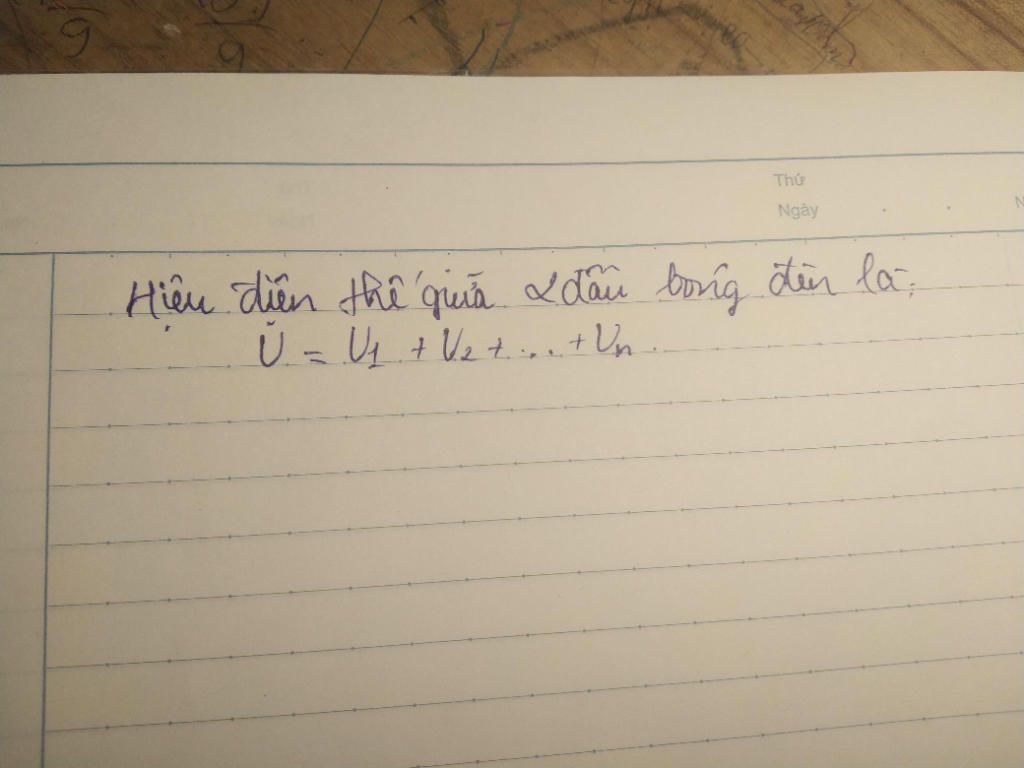 Thứ
Ngày
Hiệu điện thế giữa 2 đầu bóng đèn là:
U = U1 + U2 + ... + Un.